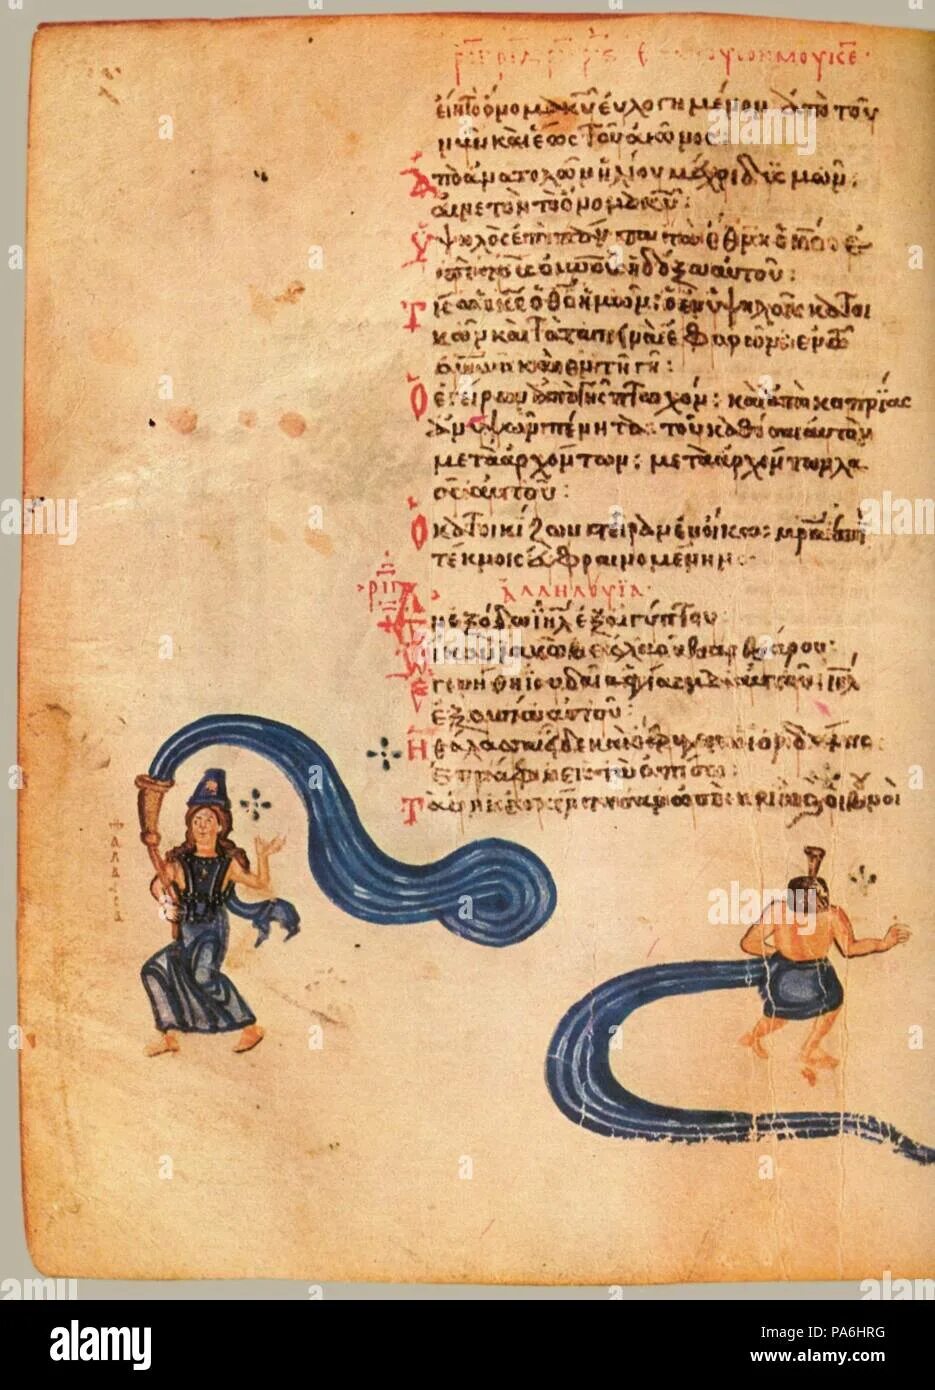 εἴη τὸ ὄνομα κυ εὐλογημένον ἀπὸ τοῦ
νῦν καὶ ἕως τοῦ αἰῶνος:
Ἀπὸ ἀνατολῶν ἡλίου μέχρι δυσμῶν:
αἰνετὸν τὸ ὄνομα κυ:
Ὑψηλὸς ἐπὶ πάντα τὰ ἔθνη ὁ κς
ἡ δόξα αὐτοῦ:
Τίς ὡς κς ὁ θς ἡμῶν: ὁ ἐν ὑψηλοῖς κατοι
κῶν καὶ τὰ ταπεινὰ ἐφορῶν: ἐν τῷ
καὶ ἐν τῇ γῇ:
Ὁ ἐγείρων ἀπὸ γῆς πτωχόν: καὶ ἀπὸ κοπρίας
ἀνυψῶν πένητα: τοῦ καθίσαι αὐτὸν
μετὰ ἀρχόντων: μετὰ ἀρχόντων λα
οῦ αὐτοῦ:
Ὁ κατοικίζων στεῖραν ἐν οἴκω: μρα ἐπὶ
τέκνοις εὐφραινομένην:
ἀλληλούϊα
Ἐν ἐξόδω ιηλ ἐξ αἰγύπτου
οἴκου ἰακὼβ ἐκ λαοῦ βαρβάρου
Ἐγενήθη ἰουδαία ἁγίασμα αὐτοῦ: ιηλ
ἐξουσία αὐτοῦ:
Ἡ θάλασσα εἶδεν καὶ ἔφυγεν ὁ ἰορδάνης
ἐστράφη εἰς τὰ ὀπίσω:
Τὰ ὄρη ἐσκίρτησαν ὡσεὶ κριοὶ
θάλασσα
alamy
Image ID: PA6HRG
www.alamy.com